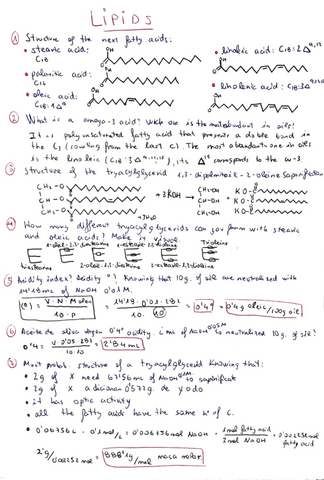 LIPIDS
① Structure of the next fatty acids:
• stearic acid:
C18
• linoleic acid: C18:2Δ9,12
• palmitic acid:
C16
• linolenic acid: C18:3Δ
• oleic acid:
C18:1Δ9
② What is a omega-3 acid? Which one is the most abundant in oils?
It is polyunsaturated fatty acid that presents a doble bond in
the C3 (counting from the last C). The most abundant one in oils
is the linoleic (C18:3Δ9,12,15), its Δ15 corresponds to the ω-3.
③ structure of the tryacylglycerid 1,3-dipalmitoil-2-oleine. Saponification
CH2-O
CH-O
CH2-O
+ 3KOH
CH2-OH
CH-OH
CH2-OH
KO-
KO-
KO-
④ How many different tryacylglycerids can you form with stearic
and oleic acids? Make it visual.
1-oleil-2,3-diestearine
1-esteail-2,3-dioleine
Trioleine
Triestearine
2-oleil-1,3-diestearine
2-estearil-1,3-dioleine
⑤ Acidity index? Acidity º? Knowing that 10g. of oil are neutralized with
14'18mL of NaOH 0'01M.
(º) = V·N·M oleic / 10·P = 14'18·0'01·281 / 10·10 = 0'4º
0'4g oleic/100g oil
⑥ Aceite de oliva virgen 0'4º acidity. ¿mL of NaOH 0'05M to neutralized 10g. of oil?
0'4 = V·0'05·281 / 10·10
2'84mL
⑦ Most probab. structure of a tryacylglycerid knowing that:
• 2g of X need 67'56mL of NaOH 0'1M to saponificate
• 2g of X adicionan 0'572g. de yodo
• it has optic activity
• all the fatty acids have the same nº of C.
• 0'06756L · 0'1mol/L = 0'006756mol NaOH · 1mol fatty acid / 3mol NaOH = 0'002252mol
fatty acid
2g / 0'002252mol = 888'1g/mol masa molar